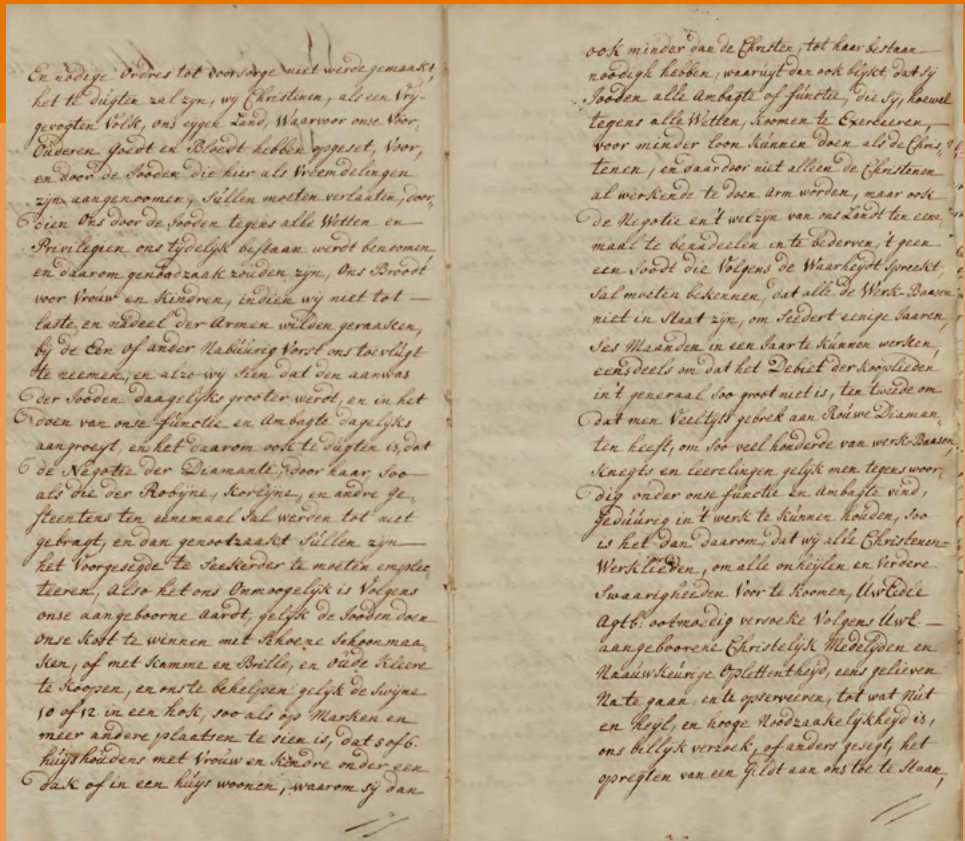 En nodege Ordres tot voorsorge niet werde gemaakt,
het te dugten zal zyn, wy Christenen, als een Vry-
gevogten Volk, ons eygen Land, Waarvoor onse Voor-
Ouderen Goedt en Bloedt hebben opgeset, Voor,
en door de Jooden die hier als Vreemdelingen
zyn aangenoomen, Sullen moeten verlaaten, door
dien Ons door de Jooden tegens alle Wetten en
Privilegien ons tydelyk bestaan werdt benoomen
en daarom genoodzaak zouden zyn, Ons Broodt
voor Vrouw en Kindren, indien wij niet tot —
laste en nadeel der Armen wilden geraaken,
by de Een of ander Nabuurig Vorst ons toevlugt
te neemen, en alzo wy Sien dat den aanwas
der Jooden daagelyks grooter werdt, en in het
doen van onse functie en Ambagte dagelyks
aangroeyt, en het daarom ook te dugten is, dat
de Negotie der Diamante, door haar, Soo
als die der Robyne, Korlyne, en andre ge-
steentens ten eenemaal Sal werden tot niet
gebragt, en dan genootzaakt Sullen zyn —
het Voorgesegde te Seekerder te moeten emplec-
teeren, Also het ons Onmoogelyk is Volgens
onse aangeboorne Aardt, gelyk de Jooden doen
onse Kost te winnen met Schoene Schoonmaa-
ken, of met Kamme en Brille, en Oude Kleere
te Koopen, en ons te behelpen gelyk de Swyne
10 of 12 in een hok, soo als op Marken en
meer andere plaatsen te sien is, dat 5 of 6.
huyshoudens met Vrouw en Kindre onder een
dak of in een huys woonen, waarom sy dan
ook minder dan de Christen, tot haar bestaan
noodigh hebben, waaruyt dan ook blykt dat sy
Jooden alle Ambagte of functie, die Sy, hoewel
tegens alle Wetten, Koomen te Exerbeeren,
voor minder loon Kunnen doen als de Chris-
tenen, en daardoor niet alleen de Christenen
al werkende te doen arm worden, maar ook
de Negotie en 't welzyn van ons Landt ten eene-
maal te benadeelen en te bederven, 't geen
een Joodt die Volgens de Waarheydt Spreekt,
Sal moeten bekennen, dat alle de Werk-Baasen
niet in Staat zyn, om Seedert eenige Jaaren,
Ses Maanden in een Jaar te Kunnen werken,
eensdeels om dat het Debiet der Kooplieden
in 't generaal Soo groot niet is, ten tweede om
dat men Veeltyts gebrek aan Rouwe Diaman-
ten heeft, om soo veel honderde van werk-Baasen,
Knegts en leerelingen gelyk men tegenswoor-
dig onder onse functie en Ambagte vind,
geduurig in 't werk te Kunnen houden, Soo
is het dan daarom, dat wy alle Christenen-
Werklieden, om alle onheylen en Verdere
Swaarigheiden Voor te Koomen, UwEdele
Agtb: ootmoedig versoeke Volgens Uwl. —
aangeboorene Christelyk Medelyden en
Nauwkeurige Oplettentheyd, eens gelieven
Na te gaan, en te opserveeren, tot wat Nut
en heyl, en hooge Noodzaakelykheyd is,
ons billyk verzoek, of anders gesegt, het
opregten van een Gildt aan ons toe te Staan,